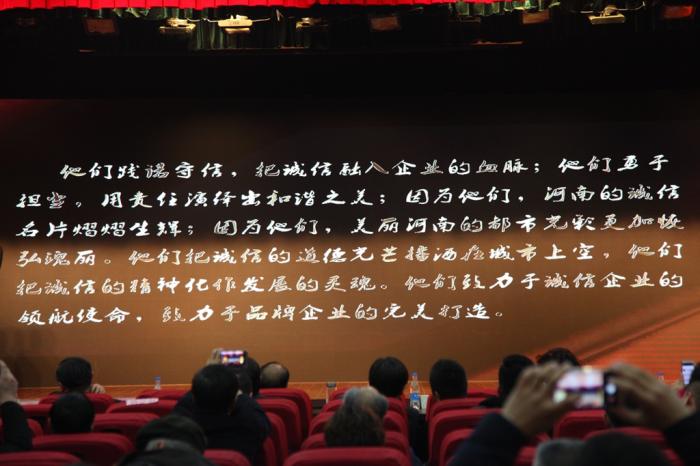 他们践诺守信，把诚信融入企业的血脉；他们勇于
担当。用责任演绎出和谐之美；因为他们，河南的诚信
名片熠熠生辉；因为他们，美丽河南的都市光彩更加恢
弘瑰丽。他们把诚信的道德光芒播洒在城市上空，他们
把诚信的精神化作发展的灵魂。他们致力于诚信企业的
领航使命，致力于品牌企业的完美打造。